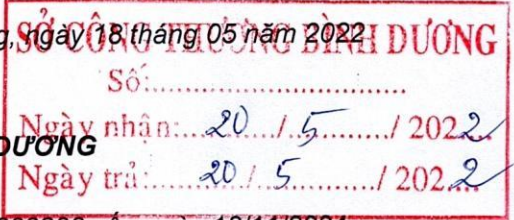 g, ngày 18 tháng 05 năm 2022
SỞ CÔNG THƯƠNG BÌNH DƯƠNG
Số:..............................
DƯƠNG
Ngày nhận:...20.../..5........./ 2022
Ngày trả:......20./..5........../ 2022